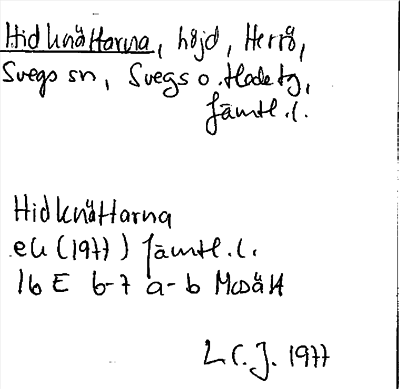 Hidknättarna, höjd, Herrö,
Svegs sn, Svegs o. Hede tg,
Jämtl. l.
Hidknättarna
ek (1977) Jämtl. l.
16 E 6-7 a-b
L C. J. 1977